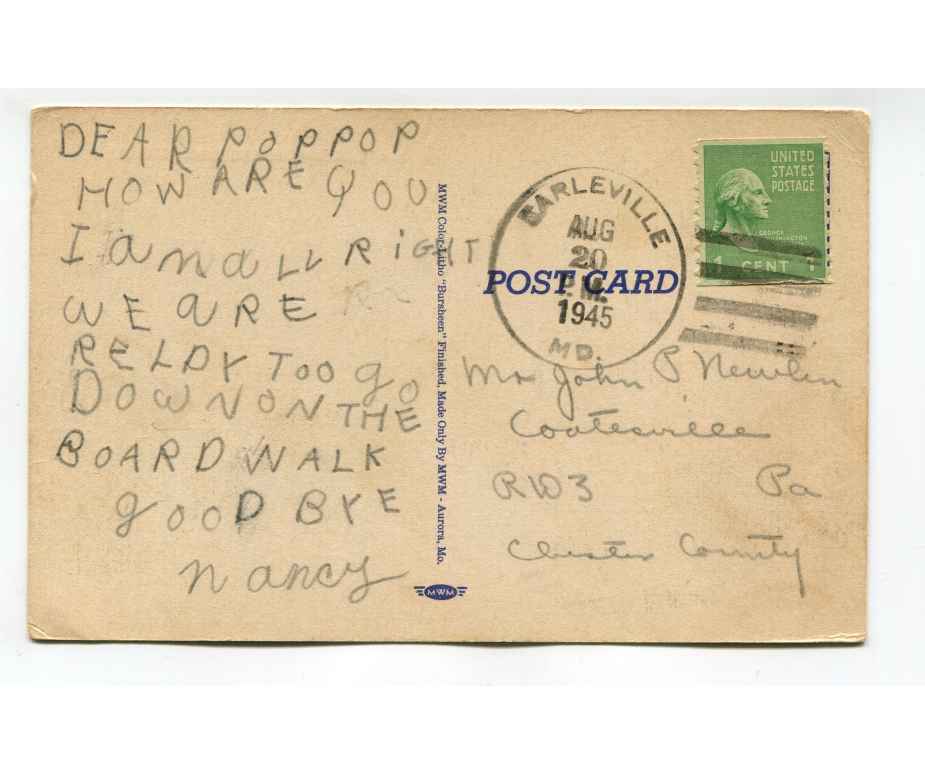 DEAR POPPOP
HOW ARE YOU
I am all RIGHT
WE ARE
RELDY TOO gO
DOWN ON THE
BOARD WALK
gOOD BYE
nancy
MWM Color-Litho "Bursheen" Finished, Made Only By MWM - Aurora, Mo.
MWM
EARLEVILLE
AUG
20
P.M.
1945
MD.
POST CARD
UNITED
STATES
POSTAGE
GEORGE
WASHINGTON
1 CENT 1
Mr John P Newlin
Coatesville
RD3 Pa
Chester County